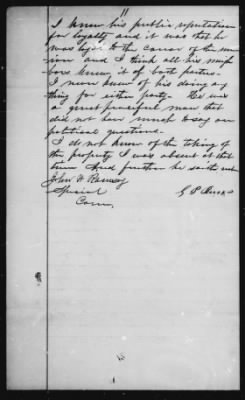 11
I knew his public reputation
for loyalty and it was that he
was loyal to the cause of the un
ion and I think all his neigh
bors knew it of both parties.
I never knew of his doing any
thing for either party. He was
a quiet peaceful man that
did not have much to say on
political questions.
I do not know of the taking of
the property I was absent at that
time And further he saith not
John H Ramsey
Special
Com
G P